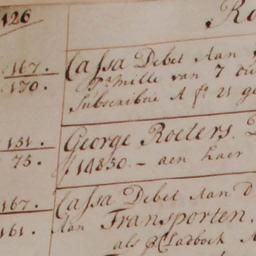 126 Ro
167. Cassa Debet Aan
170. p^r mille van 7
Subscribtie A f^o 21 ge
131. George Roeters. D
75. f 14850 - aen haer
167. Cassa Debet Aan D
161. Aan Transporten.
als p^r Cladboek A